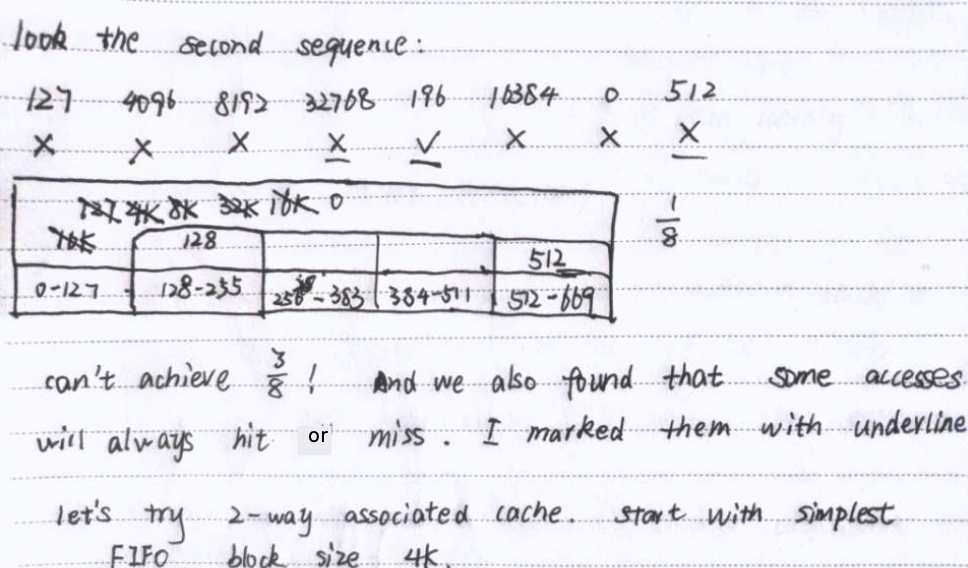 look the second sequence:
127 4096 8192 32768 196 16384 0 512
X X X X ✓ X X X
127 4K 8K 32K 16K 0
1/8
16K 128 512
0-127 128-255 256-383 384-511 512-669
can't achieve 3/8 ! And we also found that some accesses
will always hit or miss. I marked them with underline
let's try 2-way associated cache start with simplest
FIFO block size 4K.